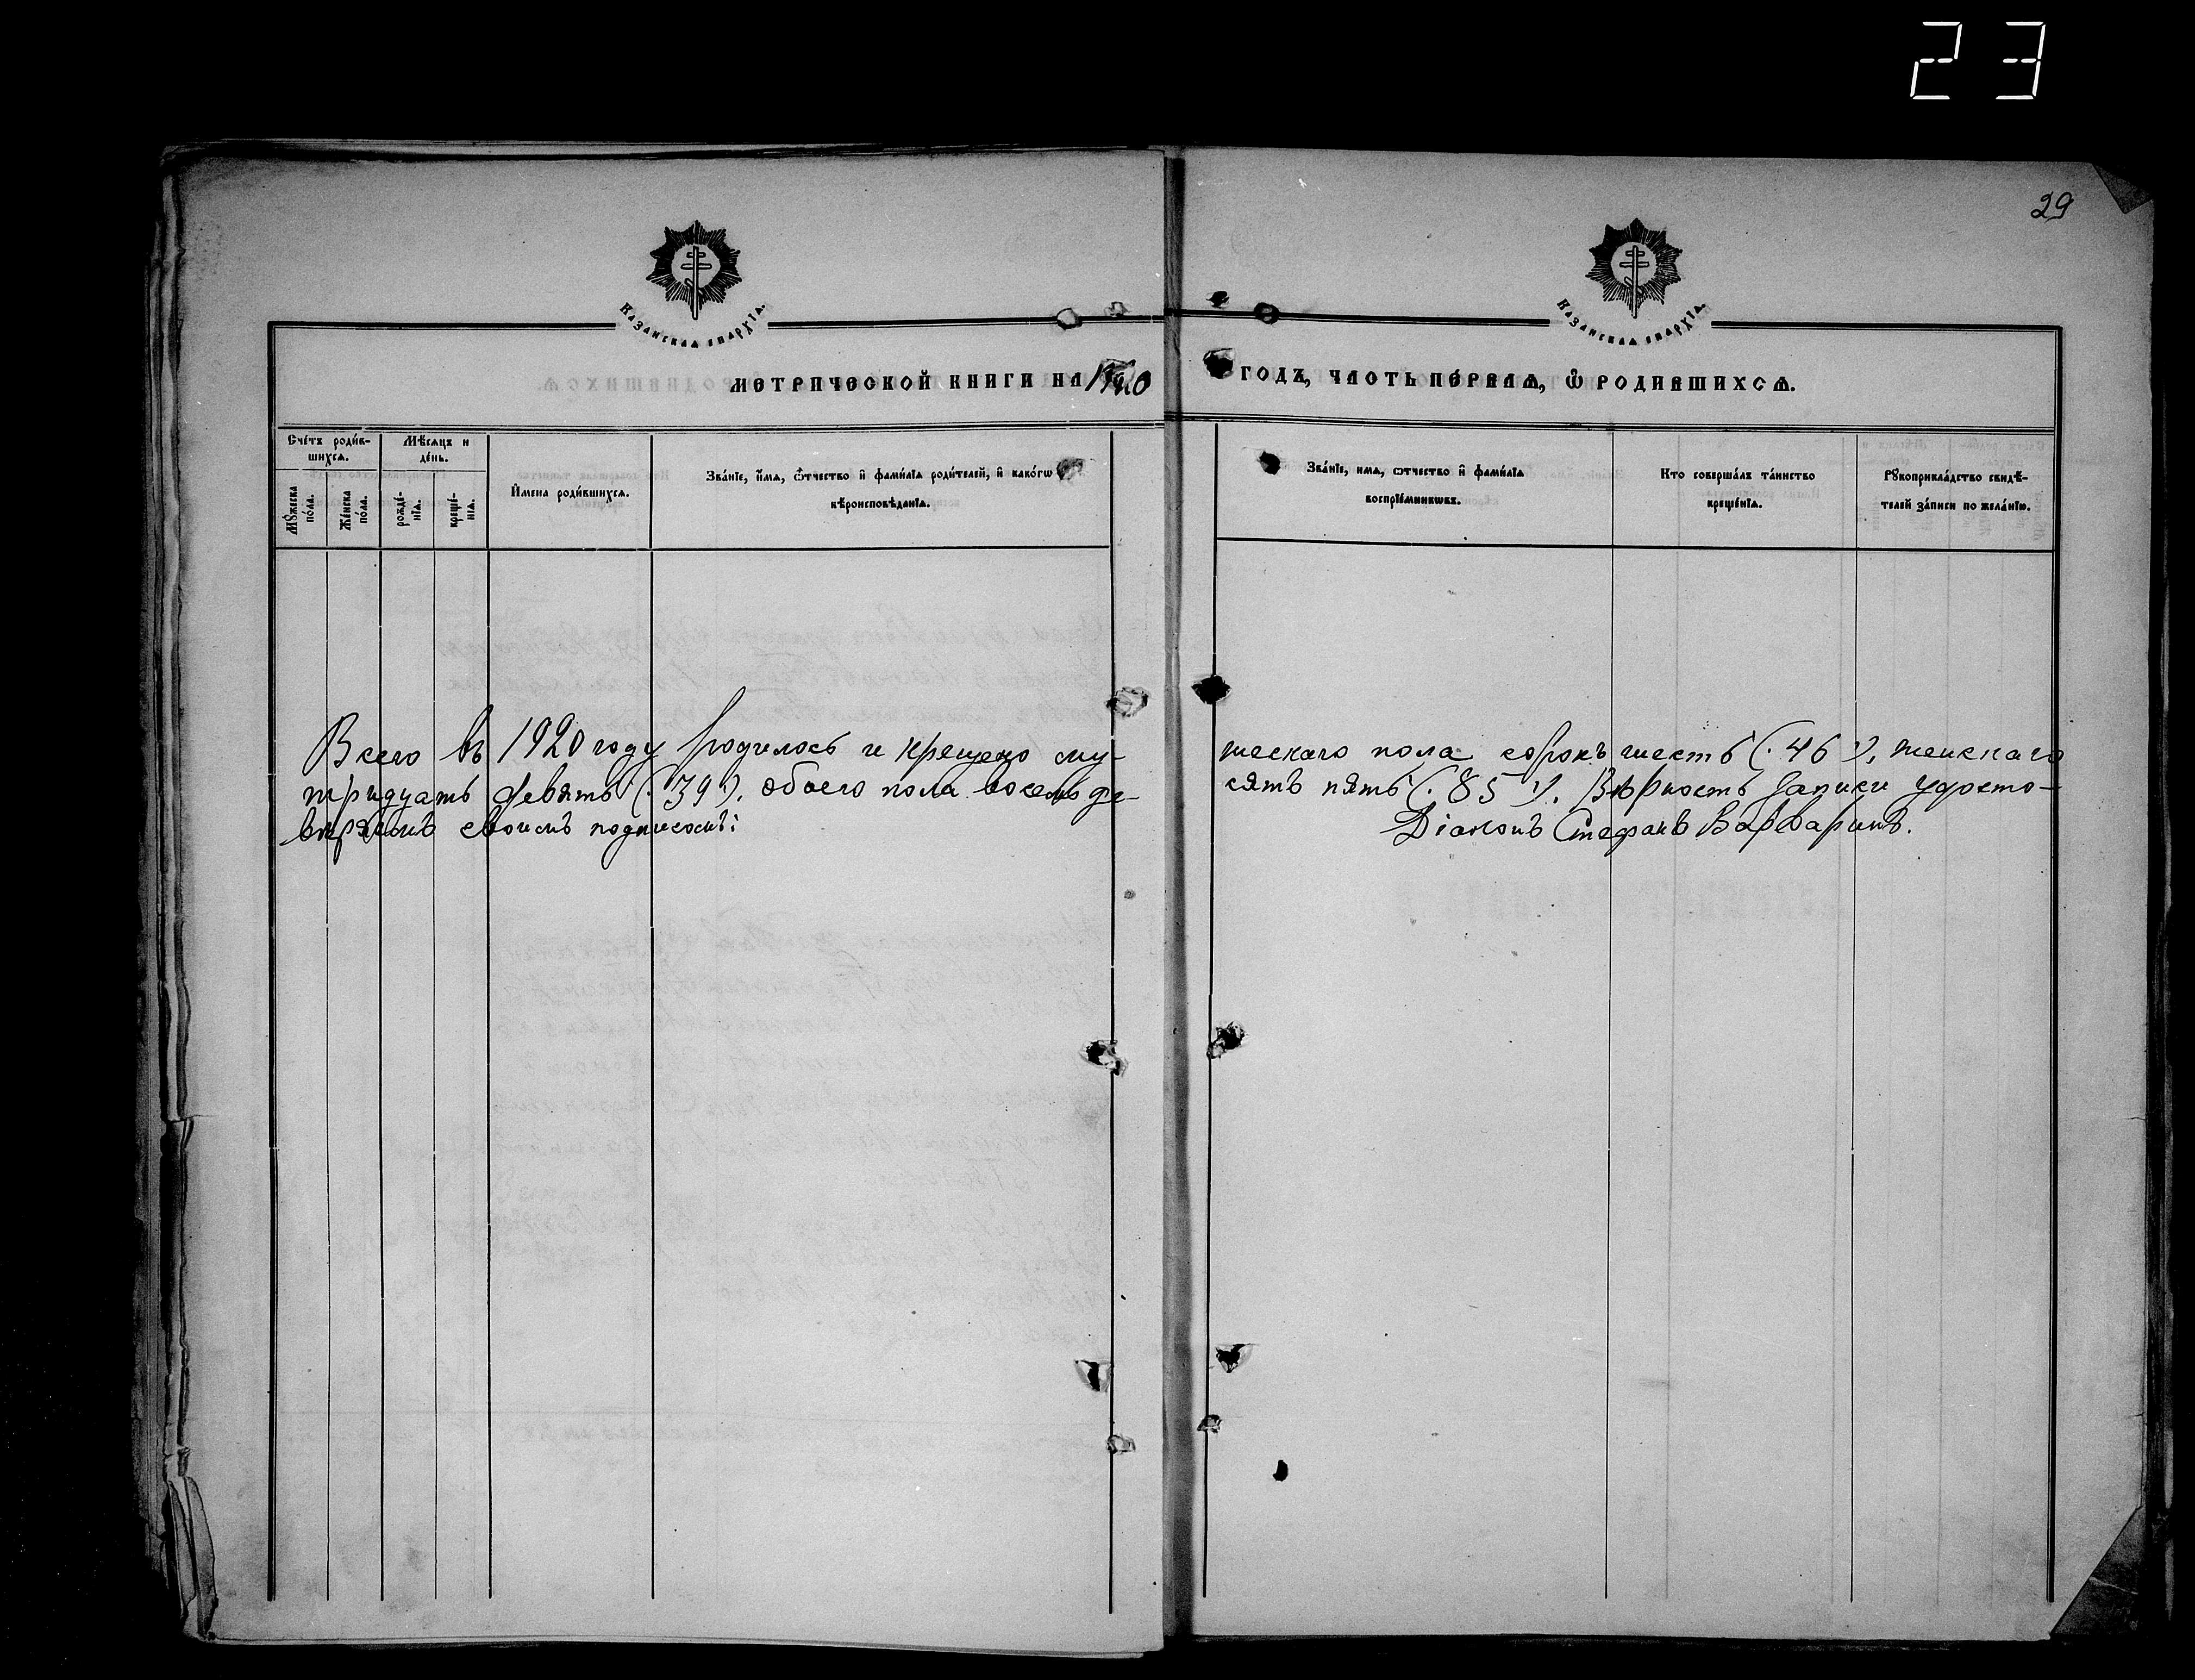 23
29
Казанская епархїѧ.
Казанская епархїѧ.
метрической книги на 1920
годъ, часть пе́рваѧ, ѽ родившихсѧ.
Сче́тъ роди́в-
шихсѧ.
Мꙋ́жеска
по́ла.
Же́нска
по́ла.
Мѣ́сѧцъ и
де́нь.
рожде́-
нїѧ.
креще́-
нїѧ.
И҆мена роди́вшихсѧ.
Зва́нїе, и҆́мѧ, ѻ҆́тчество и҆ фами́лїѧ роди́телей, и҆ како́гѡ
вѣроисповѣданїѧ.
Зва́нїе, имѧ, ѻтчество и҆ фами́лїѧ
воспрїе́мникѡвъ.
Кто соверша́лъ та́инство
креще́нїѧ.
Рꙋкоприкла́дство свидѣ́-
телей за́писи по жела́нїю.
Всего въ 1920 году родилось и крещено му-
жескаго пола сорокъ шесть (. 46 .), женскаго
тридцать девять (. 39 .), обоего пола восемьде-
сятъ пять (. 85 .). Вѣрность записи удосто-
вѣряемъ своимъ подписомъ:
Діаконъ Стефанъ Варваринъ.